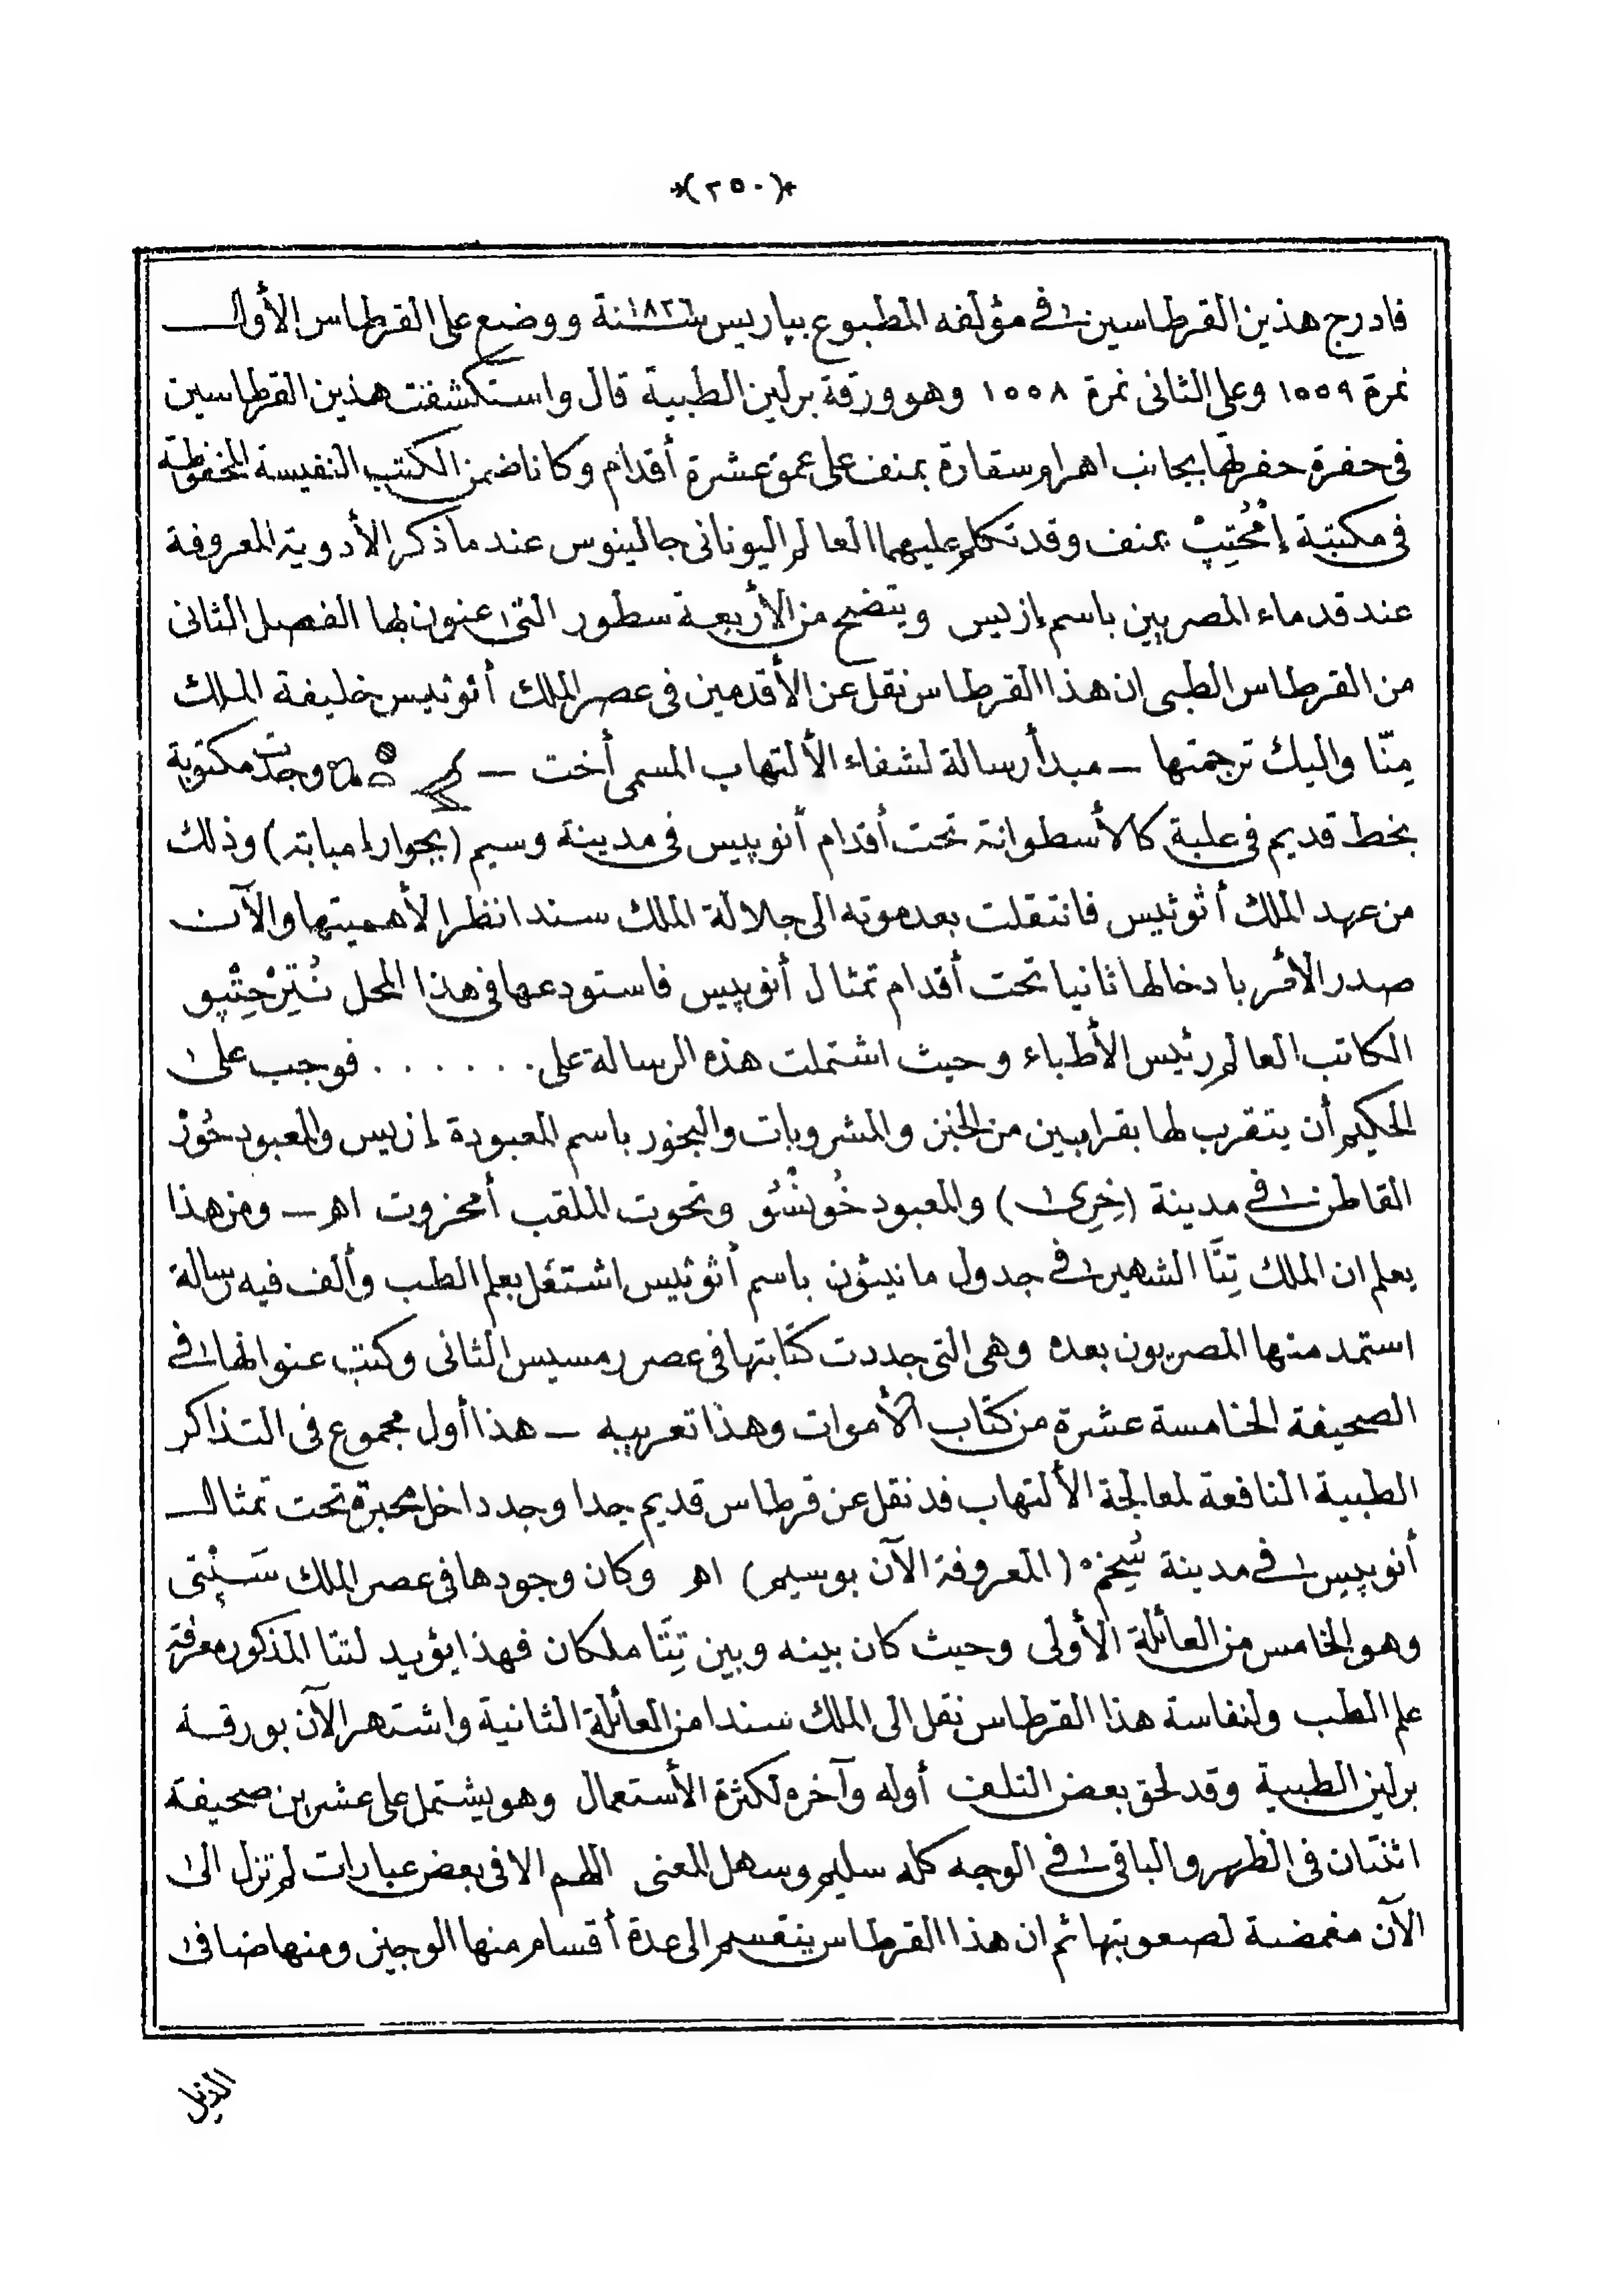 *(٢٥٠)*
فادرج هذين القرطاسين في مؤلفه المطبوع بپاريس سنة ١٨٢٦ ووضع على القرطاس الأول
نمرة ١٥٥٩ وعلى الثانى نمرة ١٥٥٨ وهو ورقة برلين الطبية قال واستكشفت هذين القرطاسين
فى حفرة حفرتها بجانب اهرام سقارة بمنف على عمق عشرة أقدام وكانا ضمن الكتب النفيسة المحفوظة
فى مكتبة إمْحُتِپْ بمنف وقد تكلم عليهما العالم اليونانى جالينوس عند ما ذكر الأدوية المعروفة
عند قدماء المصريين باسم إزيس ويتضح من الأربعة سطور التى عنون بها الفصل الثانى
من القرطاس الطبى ان هذا القرطاس نقل عن الأقدمين فى عصر الملك أثوثيس خليفة الملك
مِنّا واليك ترجمتها — مبدأ رسالة لشفاء الألتهاب المسمى أخت — وجدت مكتوبة
بخط قديم فى علبة كالأسطوانة تحت أقدام أنوبيس فى مدينة وسيم (بجوار إمبابة) وذلك
من عهد الملك أثوثيس فانتقلت بعد موته الى جلالة الملك سندا نظرا لأهميتها والآن
صدر الأمر بادخالها ثانيا تحت أقدام تمثال أنوبيس فاستودعها فى هذا المحل نُتِرْحِتْپو
الكاتب العالم رئيس الأطباء وحيث اشتملت هذه الرسالة على . . . . . . فوجب على
الحكيم أن يتقرب لها بقرابين من الخبز والمشروبات والبخور باسم المعبودة إزيس والمعبود حُوزْ
القاطن في مدينة (خِرى) والمعبود خُونْسُو وتحوت الملقب أمخروت اهـ — ومن هذا
يعلم ان الملك تِتَّا الشهير في جدول مانيثون باسم أثوثيس اشتغل بعلم الطب وألف فيه رسالة
استمد منها المصريون بعده وهى التى جددت كتابتها فى عصر رمسيس الثانى وكتب عنوانها في
الصحيفة الخامسة عشرة من كتاب الأموات وهذا تعريبه — هذا أول مجموع فى التذاكر
الطبية النافعة لمعالجة الألتهاب قد نقل عن قرطاس قديم جدا وجد داخل محبرة تحت تمثال
أنوبيس في مدينة سُيخم (المعروفة الآن بوسيم) اهـ وكان وجودها فى عصر الملك سَپْتِى
وهو الخامس من العائلة الأولى وحيث كان بينه وبين تِتَّا ملكان فهذا يؤيد لتتا المذكور معرفة
علم الطب ولنفاسة هذا القرطاس نقل الى الملك سندا من العائلة الثانية واشتهر الآن بورقة
برلين الطبية وقد لحق بعض التلف أوله وآخره لكثرة الأستعمال وهو يشتمل على عشرين صحيفة
اثنتان فى الظهر والباقى في الوجه كله سليم وسهل المعنى اللهم الا فى بعض عبارات لم تزل الى
الآن مغمضة لصعوبتها ثم ان هذا القرطاس ينقسم الى عدة أقسام منها الوجيز ومنها ضافى
الذيل